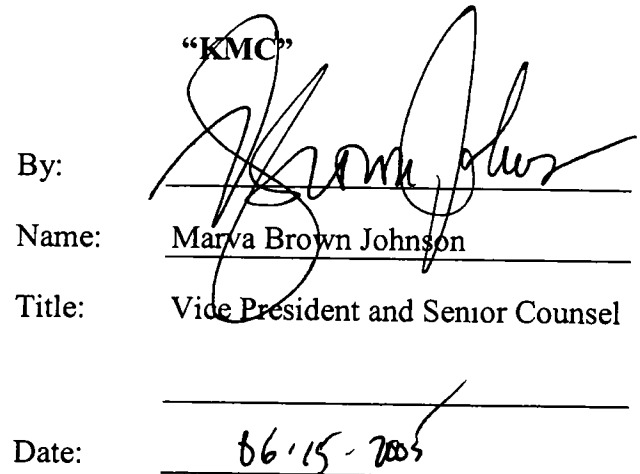 “KMC”
By: Brown Johnson
Name: Marva Brown Johnson
Title: Vice President and Senior Counsel
Date: 06-15-2005